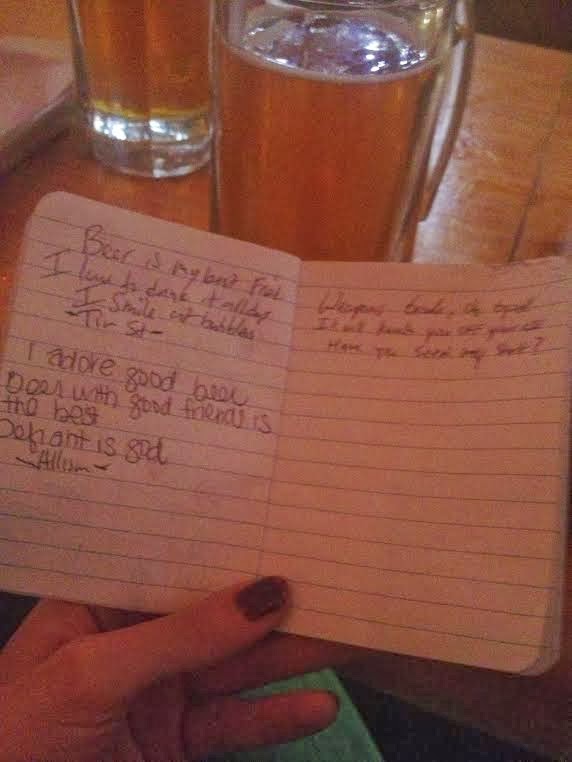 Beer is my best Frend
I love to drink it all day
I Smile at bubbles
-Tir St-
I adore good beer
Beer with good friends is
the best
Defiant is god
-Allism-
I will you off your
Have you seen my shoe?